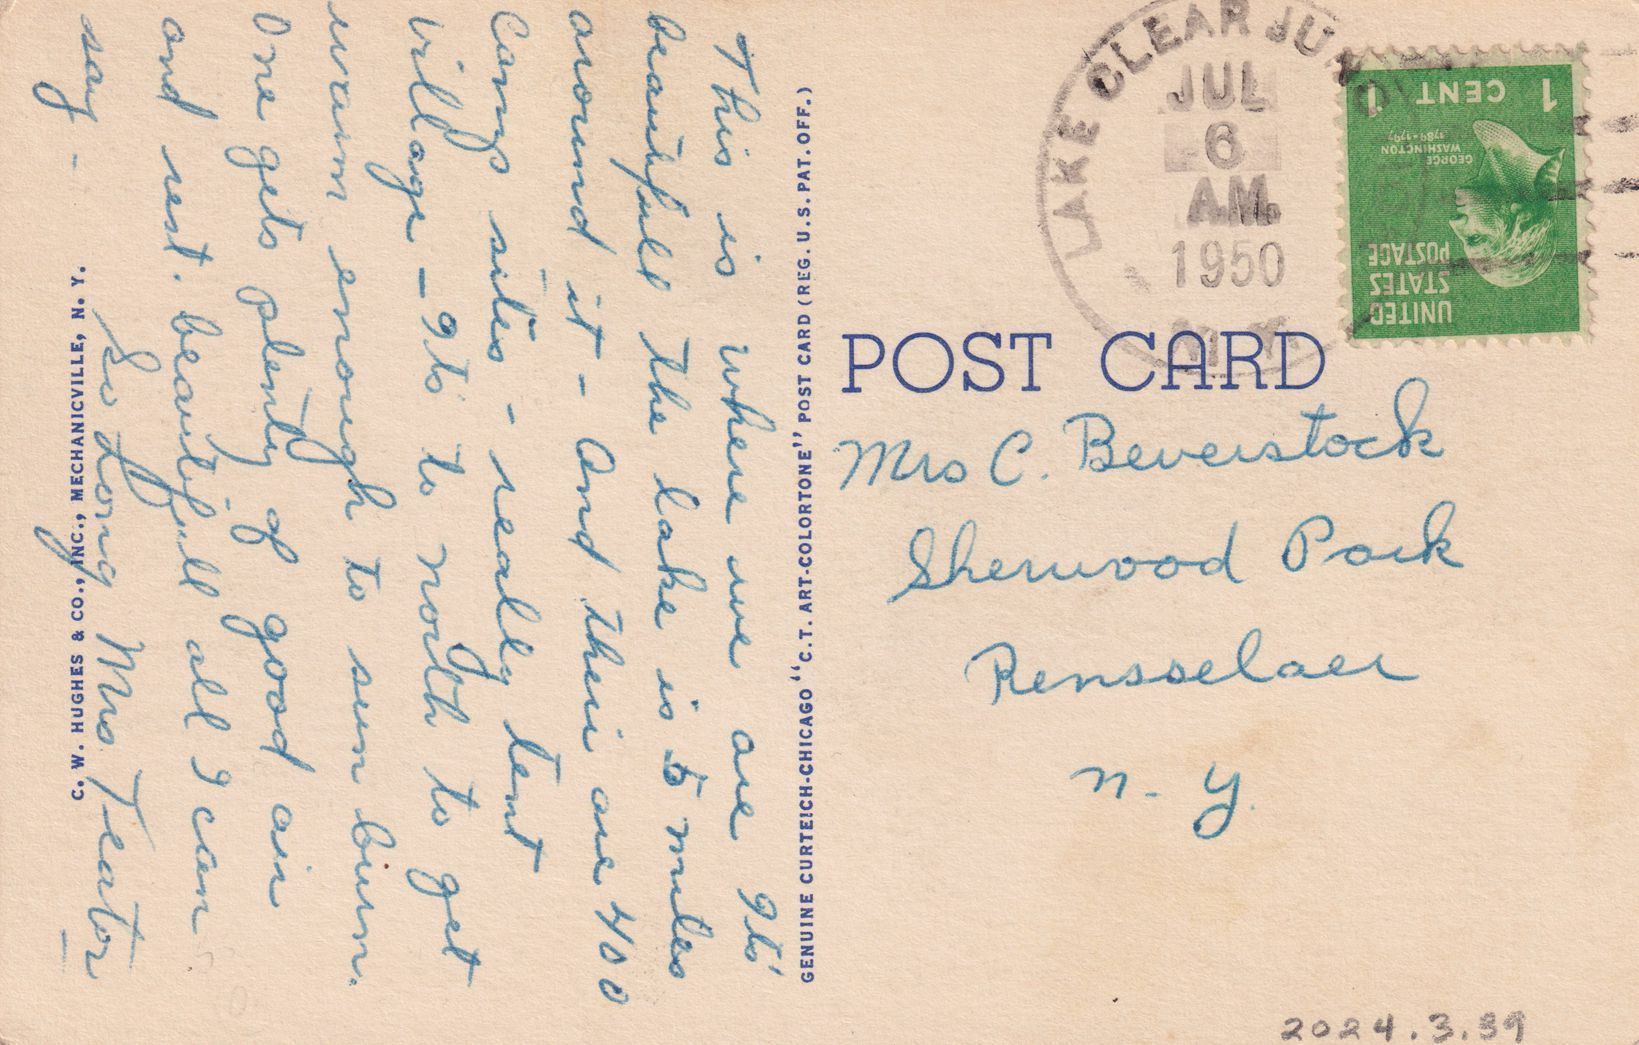 This is where we are Its'
beautifull the lake is 5 miles
around it - And their are 400
Camp sites - really tent
village - Its to north to get
warm enough to sun burn.
One gets plenty of good air
and rest. beautifull all I can
say -
So Long Mrs Teator
C. W. HUGHES & CO., INC., MECHANICVILLE, N. Y.
GENUINE CURTEICH-CHICAGO "C. T. ART-COLORTONE" POST CARD (REG. U.S. PAT. OFF.)
LAKE CLEAR JUN
JUL
6
A.M.
1950
N. Y.
1 CENT 1
GEORGE
WASHINGTON
1789-1797
UNITED
STATES
POSTAGE
POST CARD
Mrs C. Beverstock
Sherwood Park
Rensselaer
N. Y.
2024.3.39